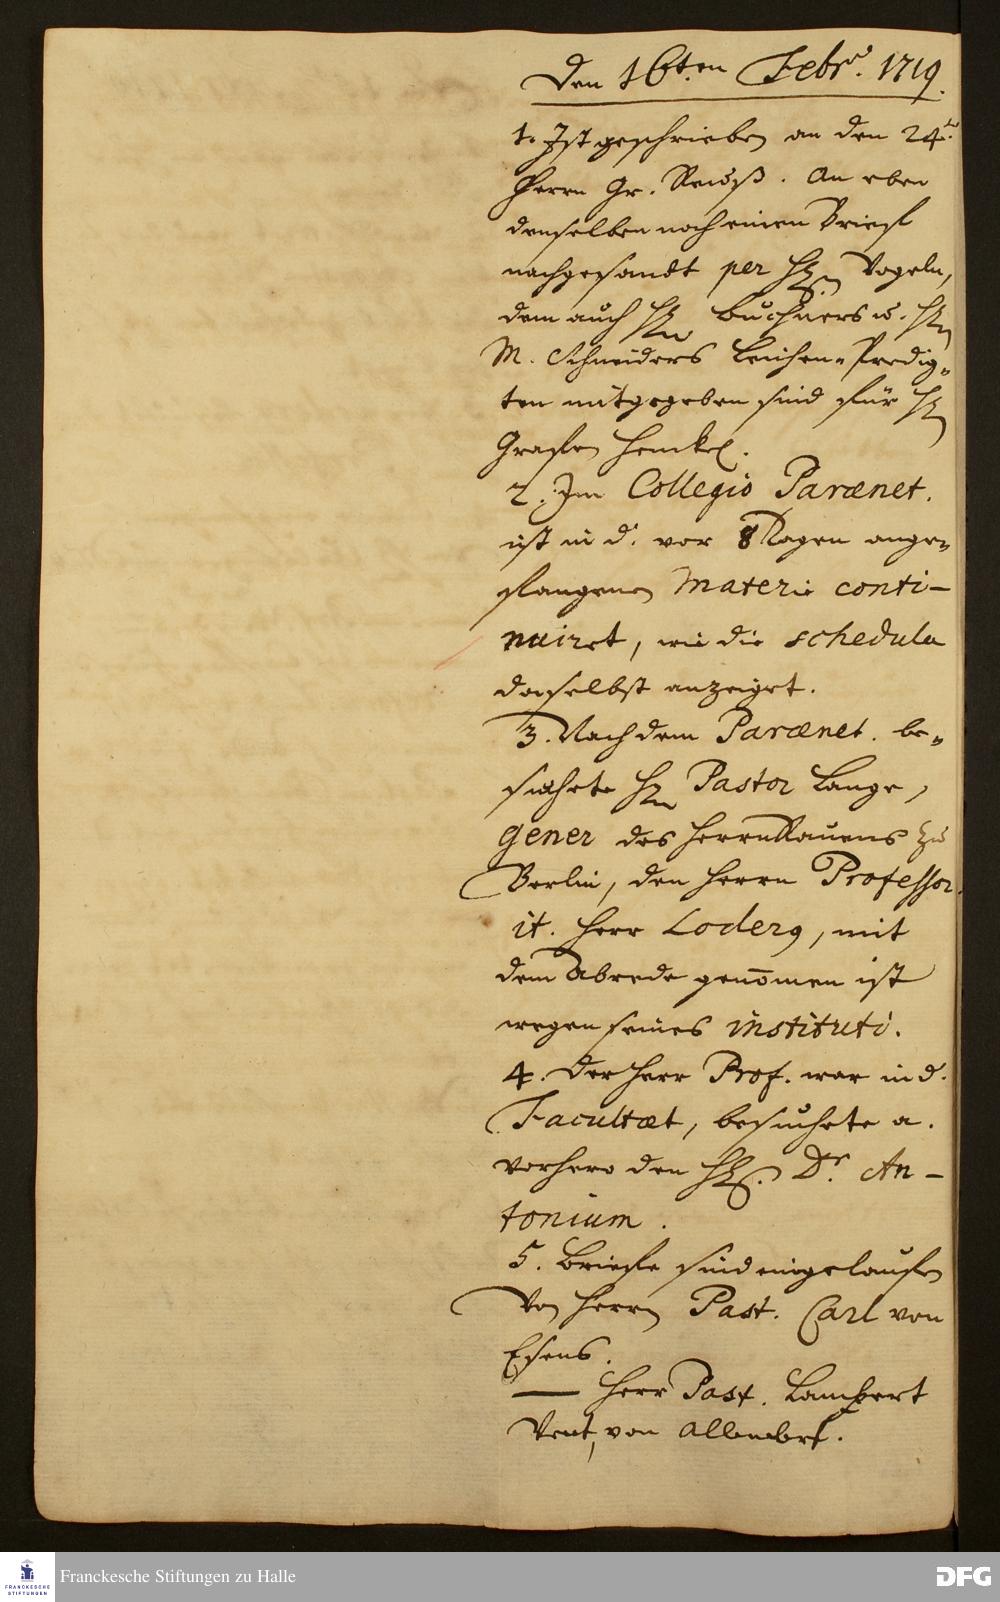 Den 16ten Febr. 1719.
1. Ist geschrieben an den 24t.
Herrn Gr. Reuß. An eben
denselben noch einen Brieff
nachgesandt per H. Vogeln,
dem auch Hn Buchners u. Hn
M. Schneiders Leichen-Predig-
ten mitgegeben sind für Hn
Graffen Henckel.
2. Im Collegio Parænet.
ist in d. vor 8 Tagen ange-
fangenen Materie conti-
nuiret, wie die schedula
daselbst anzeiget.
3. Nach dem Parænet. be-
suchte Hn Pastor Lange,
gener des Herrn Rauens zu
Berlin, den Herrn Professor.
it. Herr Loderg, mit
dem Abrede genom̄en ist
wegen seines instituti.
4. Der Herr Prof. war in d.
Facultæt, besuchete a.
vorhero den H. Dr. An-
tonium.
5. Brieffe sind eingelauffen
Von Herrn Past. Carl von
Esens.
— Herr Past. Lampert
Vent, von Allendorf.
Franckesche Stiftungen zu Halle
FRANCKESCHE STIFTUNGEN
DFG